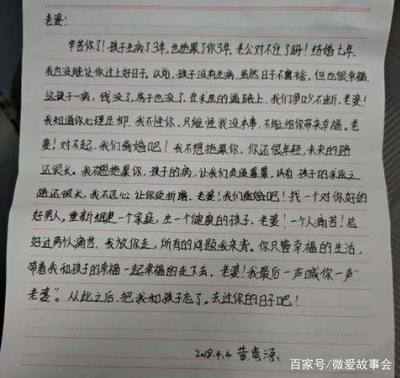 老婆:
辛苦你了!孩子生病了3年,也拖累了你3年。老公对不住了啊!结婚七年,
我也没能让你过上好日子。以前,孩子没有生病,虽然日子不富裕,但也很幸福。
这孩子一病,钱没了,房子也没了,在求医的道路上,我们争吵不断。老婆!
我知道你心理压抑,我不怪你,只能怪我没本事,不能给你带来幸福。老
婆!对不起,我们离婚吧!我不想拖累你,你还很年轻,未来的路
还很长。我不想拖累你,孩子的病,让我们负债累累,以后孩子的求医之
路还很长,我不忍心让你受折磨。老婆!我们离婚吧!找一个对你好的
好男人,重新组建一个家庭,生一个健康的孩子。老婆!一个人痛苦!总
好过两个人痛苦。我放你走,所有的问题我来背。你只管幸福的生活,
带着我和孩子的幸福一起幸福的走下去。老婆!我最后一声喊你一声"
老婆"。从此之后,把我和孩子忘了,去过你的日子吧!
2018.4.4.
百家号/微爱故事会